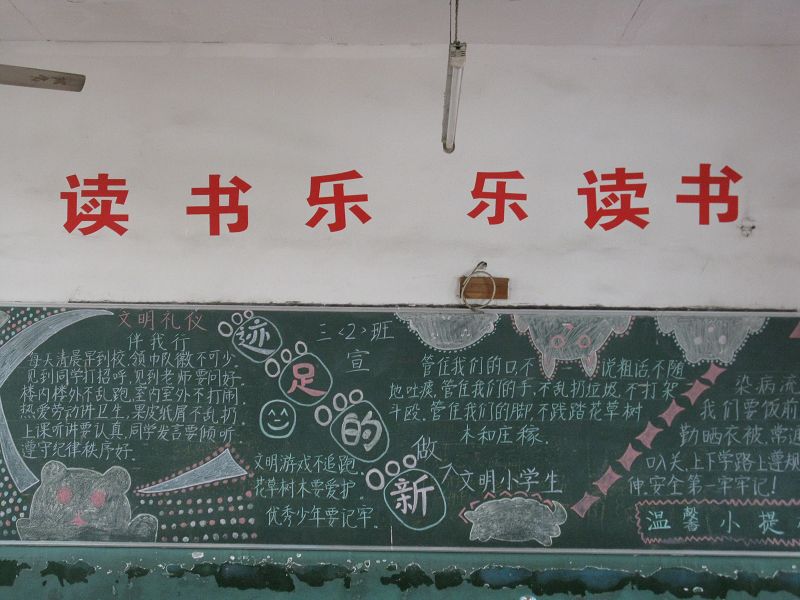 读书乐 乐读书
文明礼仪
伴我行
每天清晨早到校,领巾队徽不可少
见到同学打招呼,见到老师要问好.
楼内楼外不乱跑,室内室外不打闹
热爱劳动讲卫生,果皮纸屑不乱扔
上课听讲要认真,同学发言要倾听
遵守纪律秩序好.
新的足迹
三〈2〉班
宣
文明游戏不追跑
花草树木要爱护
优秀少年要记牢.
管住我们的口不说粗话不随
地吐痰.管住我们的手,不乱扔垃圾,不打架
斗殴.管住我们的脚,不践踏花草树
木和庄稼.
做
文明小学生
染病流
我们要饭前
勤晒衣被.常通
口入关,上下学路上遵规
伸.安全第一牢牢记!
温馨小提